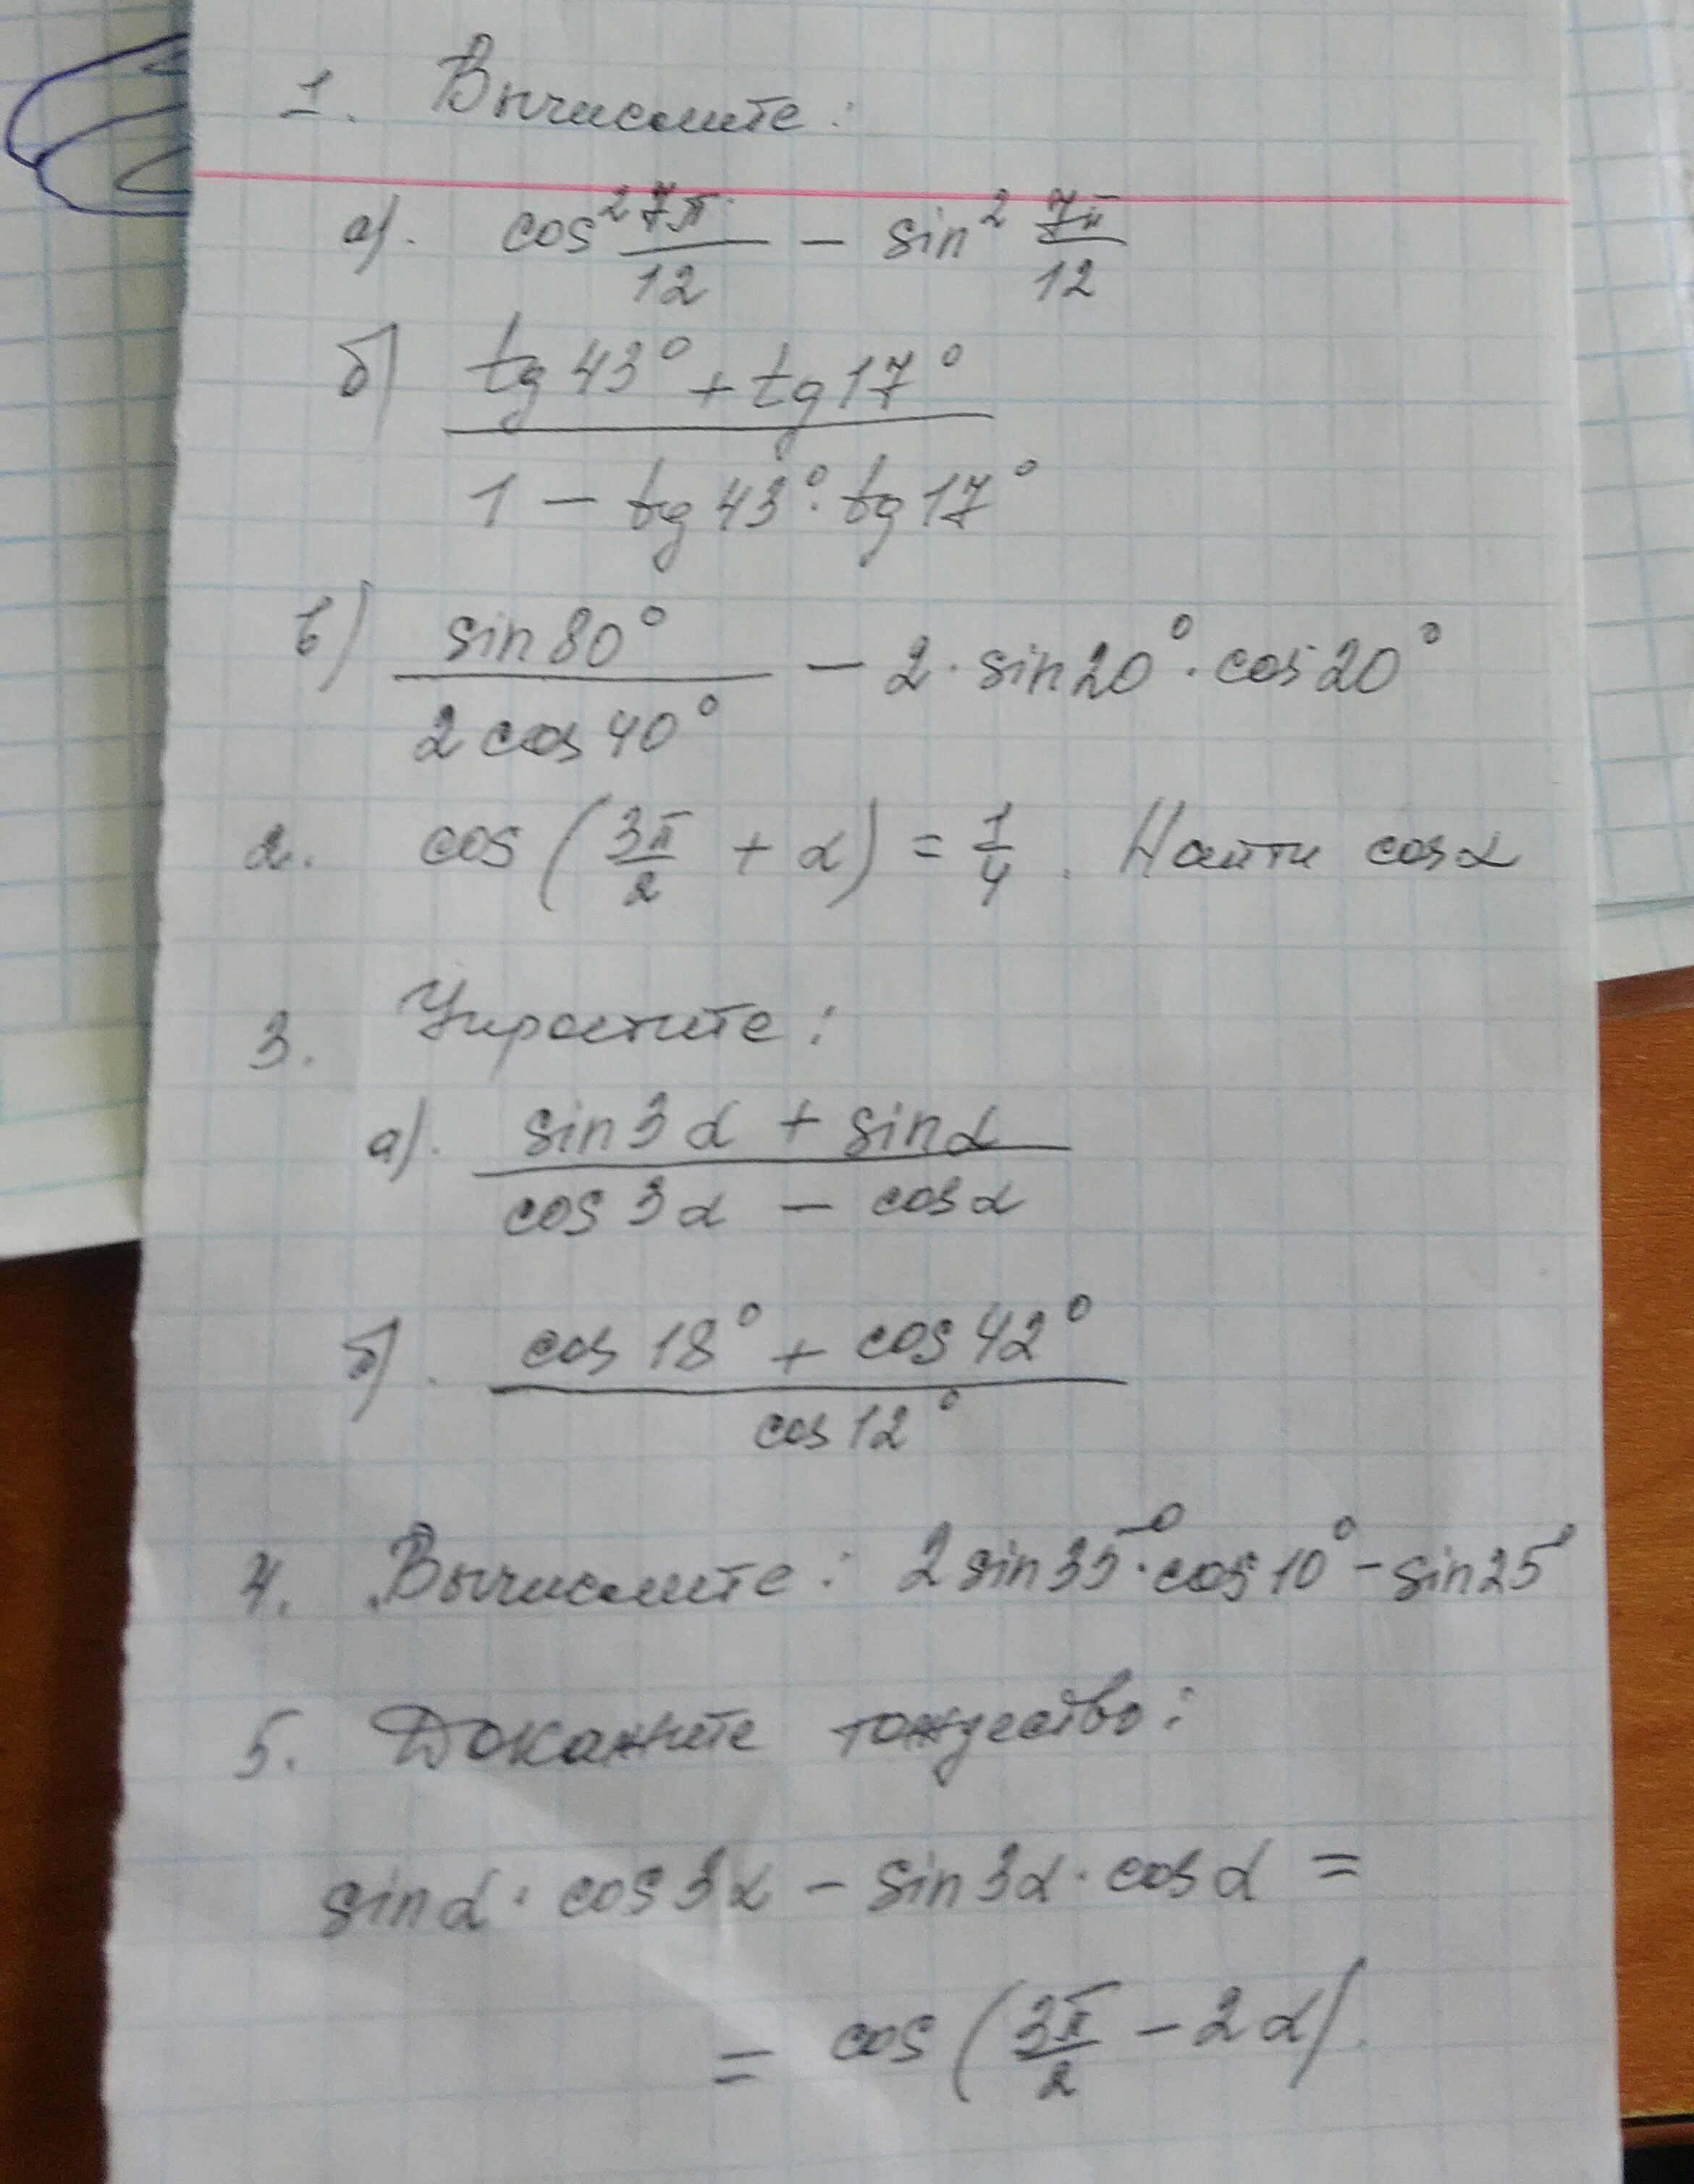 1. Вычислите:
а). cos² 7π/12 − sin² 7π/12
б) (tg 43° + tg 17°) / (1 − tg 43° · tg 17°)
в) sin 80° / (2 cos 40°) − 2 · sin 20° · cos 20°
2. cos (3π/2 + α) = 1/4. Найти cos α
3. Упростите:
а). (sin 3α + sin α) / (cos 3α − cos α)
б). (cos 18° + cos 42°) / cos 12°
4. Вычислите: 2 sin 35° · cos 10° − sin 25°
5. Докажите тождество:
sin α · cos 3α − sin 3α · cos α =
= cos (3π/2 − 2α).